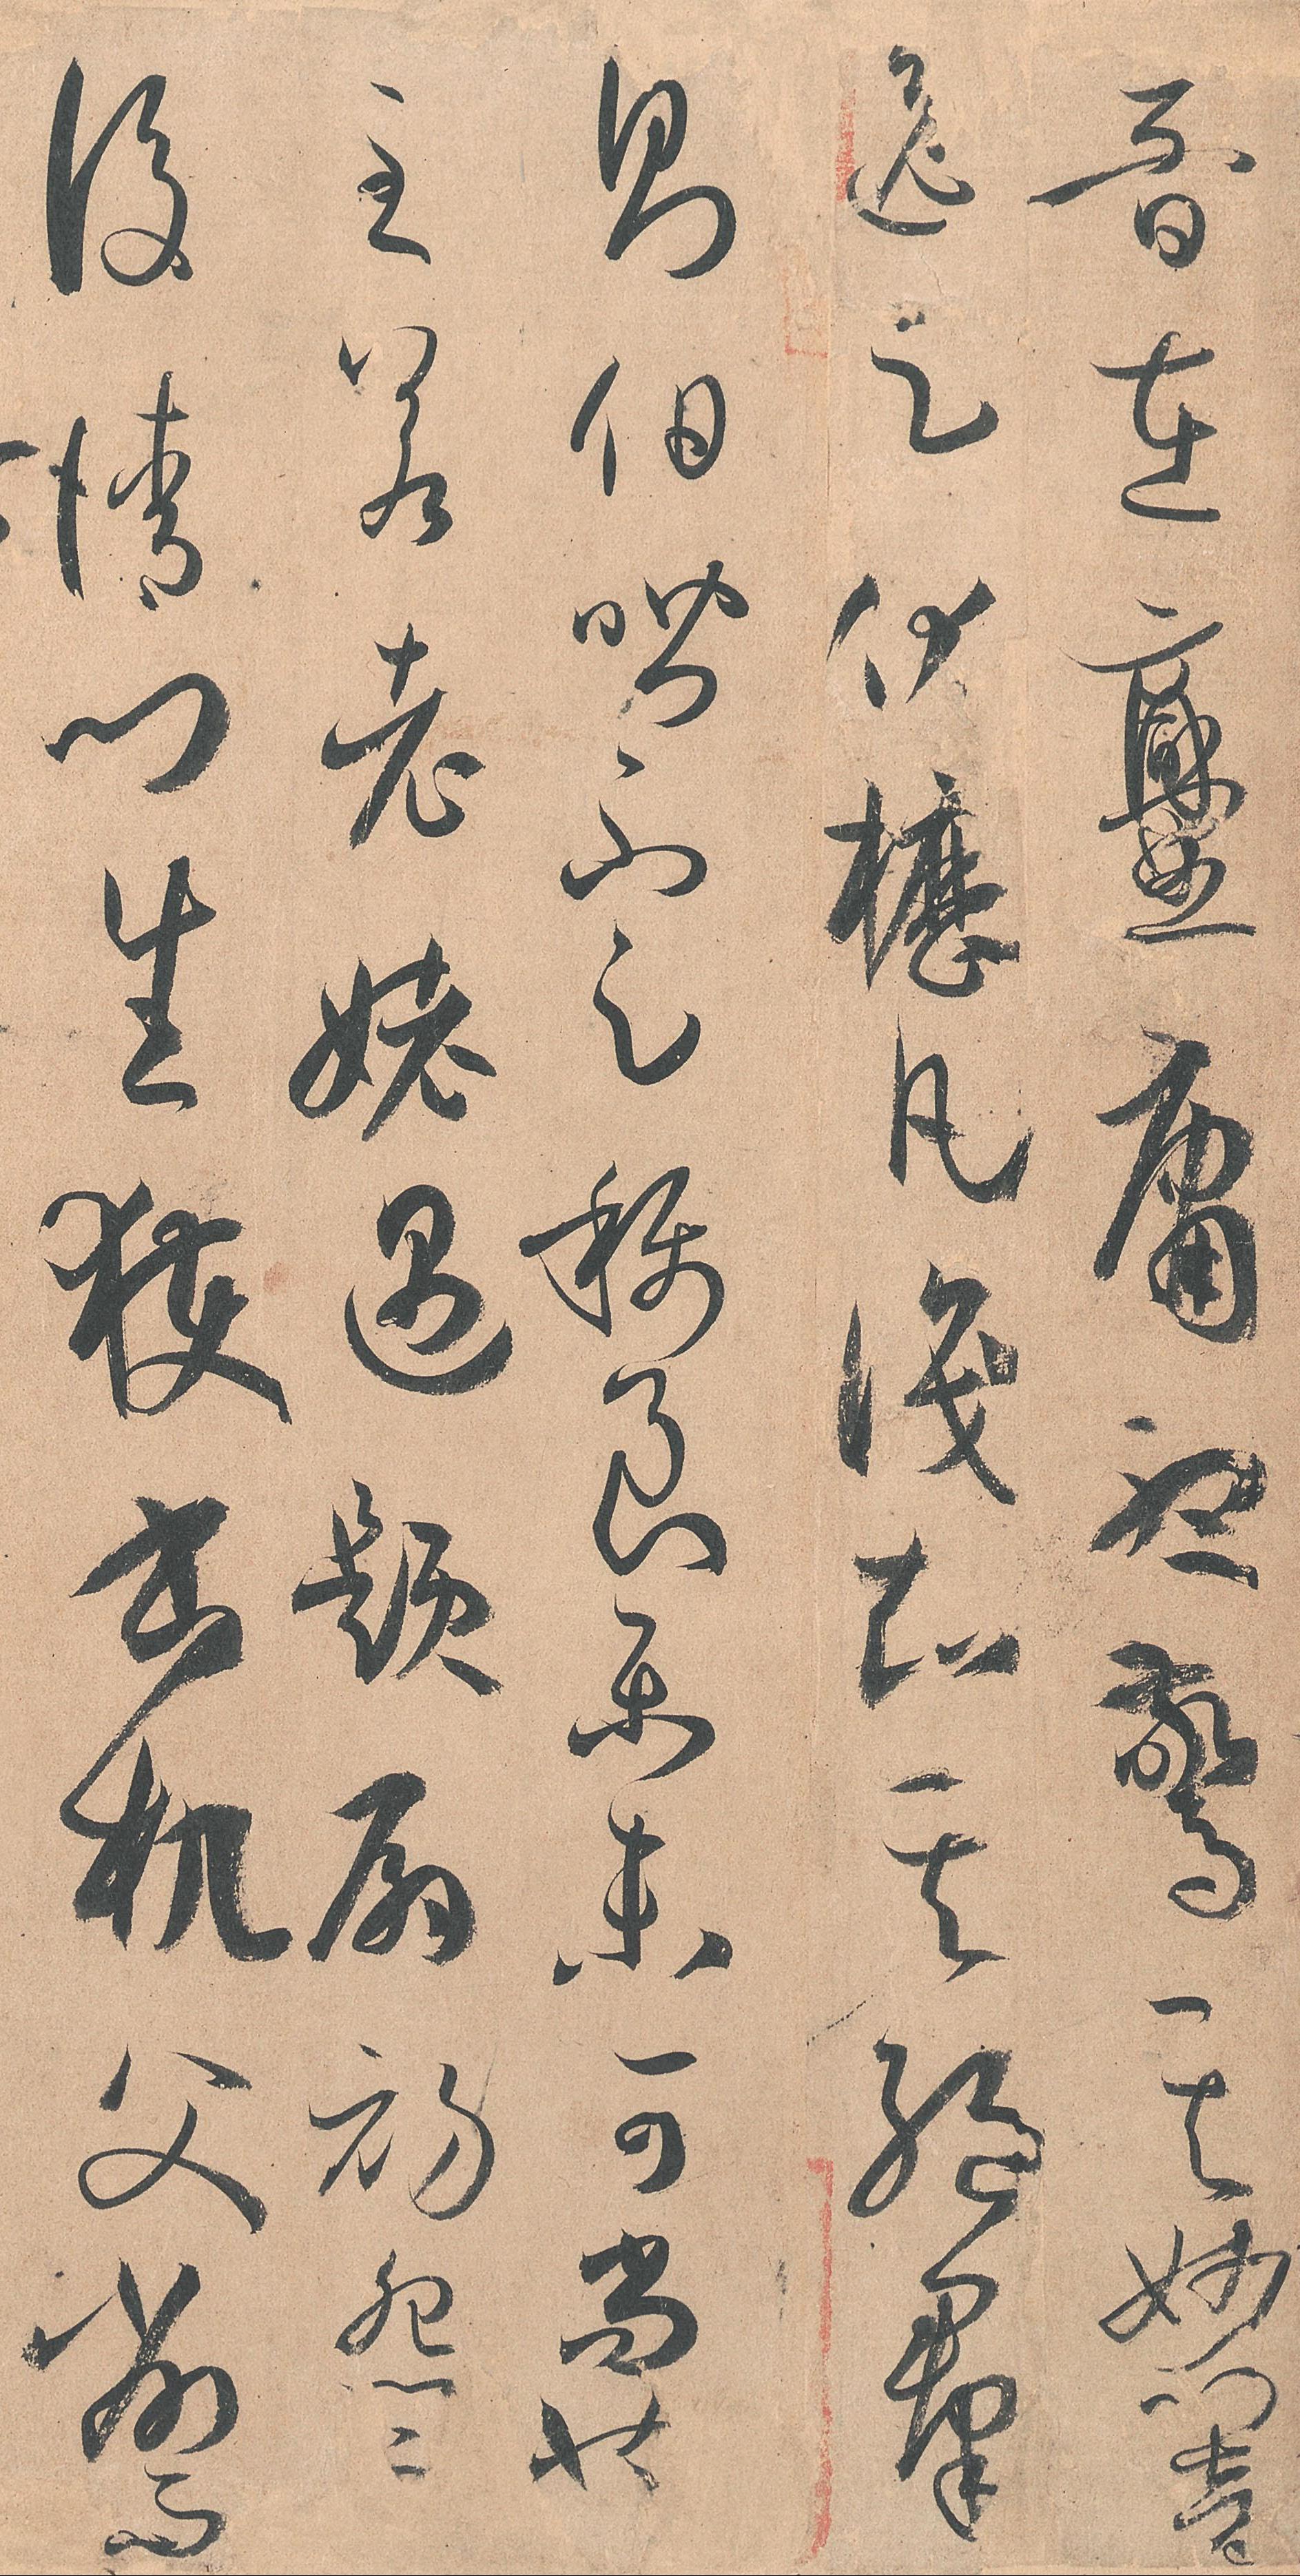 音在爨庸聽驚其妙響
逸足伏櫪凡識知其絕羣
則伯喈不足稱良樂未可尚也
至若老姥遇題扇初怨而
後請門生獲書机父削而